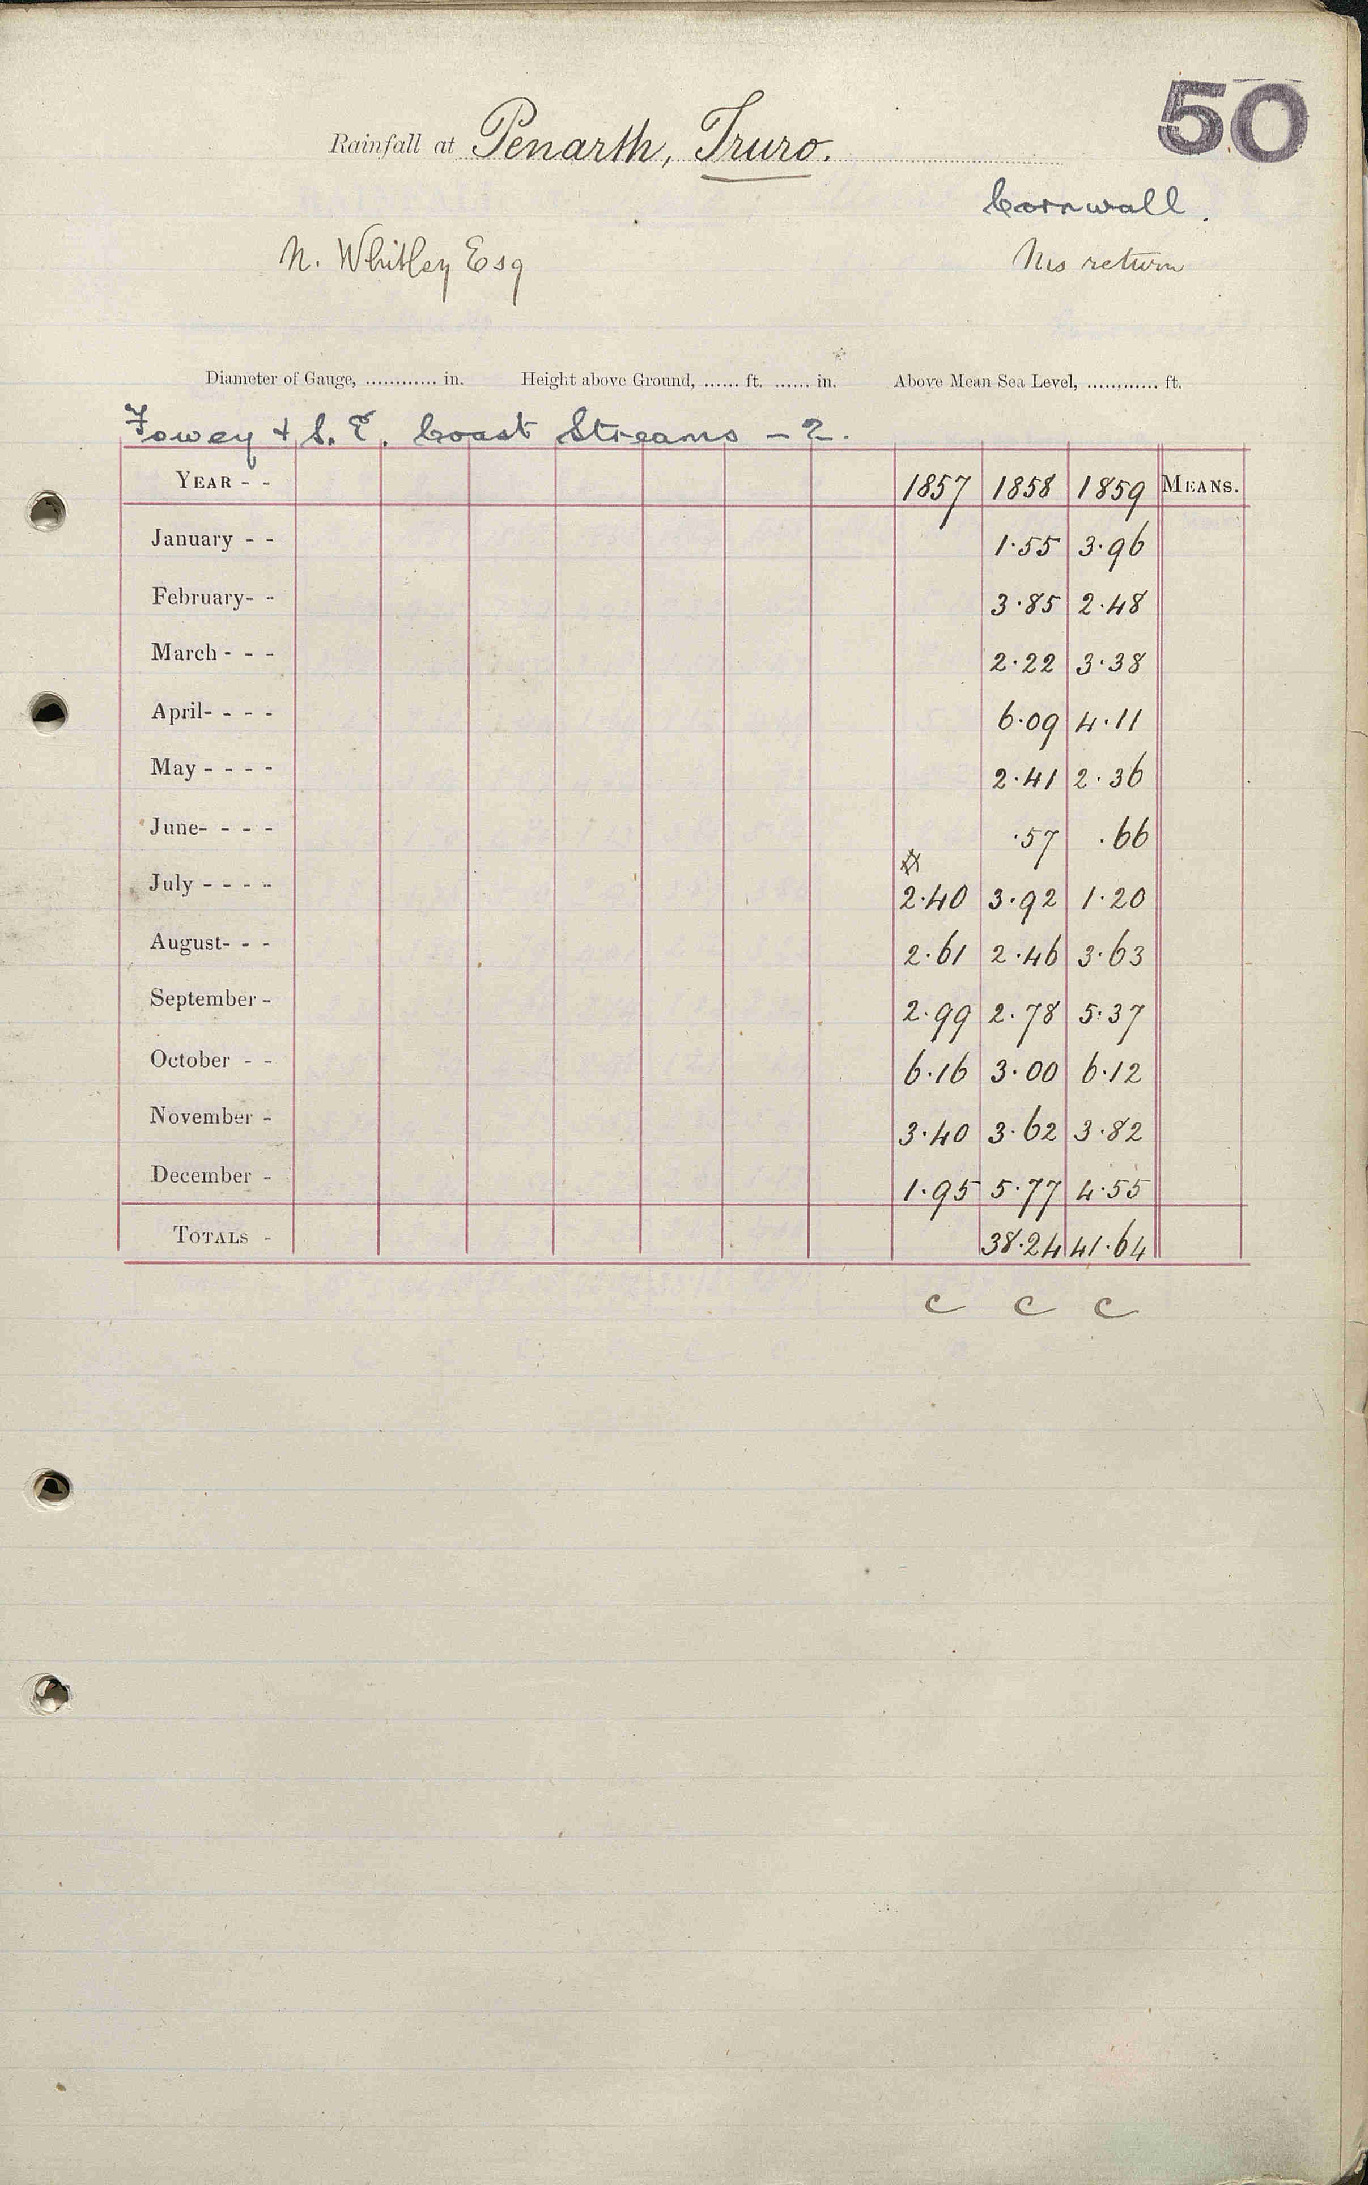 50
Rainfall at Penarth, Truro.
Cornwall.
N. Whitley Esq
Ms return
Diameter of Gauge, ............ in. Height above Ground, ...... ft. ...... in. Above Mean Sea Level, ............ ft.
Fowey & S. E. Coast Streams - 2.
YEAR - - 1857 1858 1859 MEANS.
January - - 1.55 3.96
February- - 3.85 2.48
March - - - 2.22 3.38
April- - - - 6.09 4.11
May - - - - 2.41 2.36
June- - - - .57 .66
July - - - - 2.40 3.92 1.20
August- - - 2.61 2.46 3.63
September - 2.99 2.78 5.37
October - - 6.16 3.00 6.12
November - 3.40 3.62 3.82
December - 1.95 5.77 4.55
TOTALS - 38.24 41.64
c c c